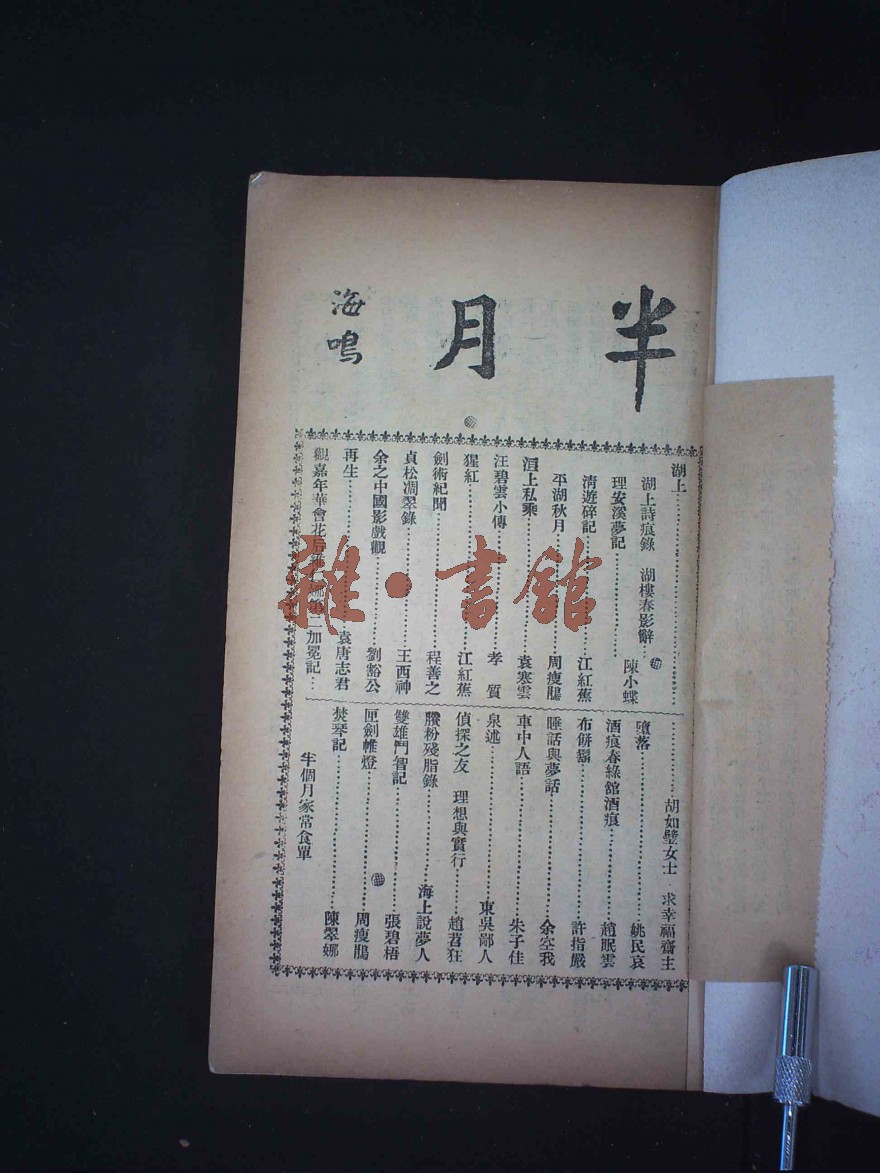 半月
海鳴
湖上……胡如璧女士 求幸福齋主
湖上詩痕錄 湖樓春影辭…陳小蝶
理安溪夢記……
清遊碎記……江紅蕉
平湖秋月……周瘦鵑
洹上私乘……袁寒雲
汪碧雲小傳……孝 質
猩紅……江紅蕉
劍術紀聞……程善之
貞松凋翠錄……王西神
余之中國影戲觀……劉豁公
再生……袁唐志君
觀嘉年華會花后 第二加冕記…
墮落……姚民哀
酒痕春綠館酒痕……趙眠雲
布餅鬍……許指嚴
睡話與夢話……余空我
車中人語……朱子佳
泉述……東吳鄙人
偵探之友 理想與實行……趙苕狂
賸粉殘脂錄……海上說夢人
雙雄鬥智記……張碧梧
匣劍帷燈……周瘦鵑
焚琴記……陳翠娜
半個月家常食單
雜·書館